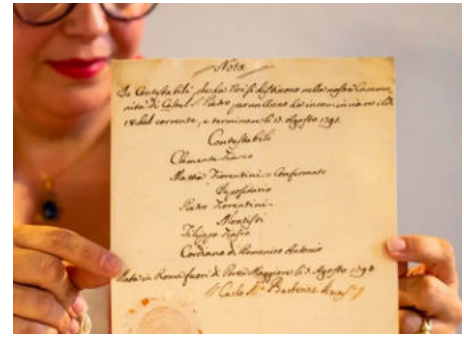 Nota
De Contestabili, che da Noi si destinono nella nostra Commu-
nità di Castel S. Pietro per un Anno da incominciare
18 del corrente, a terminare li Agosto 1791
Contestabili
Clemente
Mattia Fiorentini = Confermato
Depositario
Pietro Fiorentini =
Montisti
Filippo
Cordiano di Domenico Antonio
Data in Roma fuori di Porta Maggiore li 3. Agosto 1790
Carlo